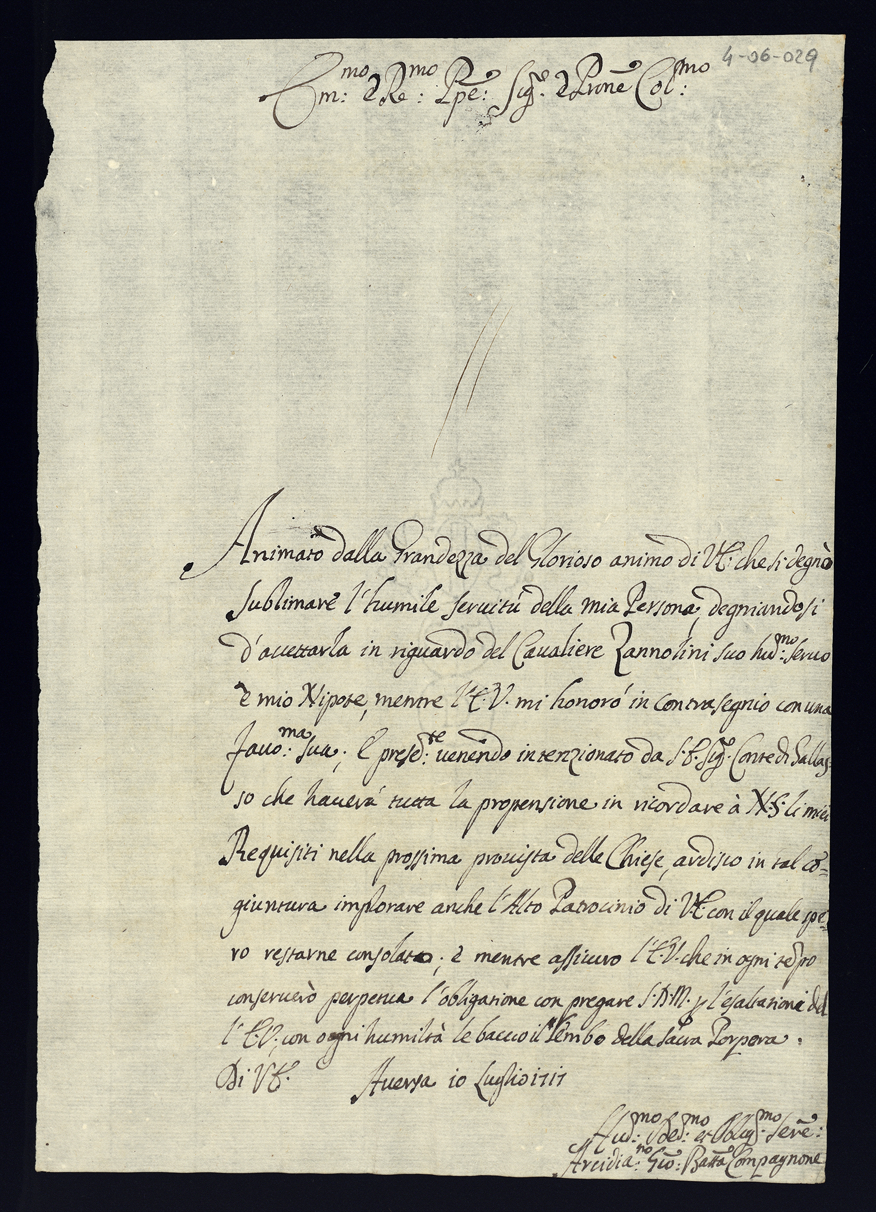 4-06-029
Em:mo e Re:mo Ppe: Sig:re e Prone Col:mo
Animato dalla Grandezza del Glorioso animo di VE: che si degnò
sublimare l'humile servitù della mia Persona, degniandosi
d'accettarla in riguardo del Cavaliere Zannolini suo hu:mo servo
e mio Nipote, mentre l'E.V. mi honorò in contrasegnio con una
favo:ma sua; E presed:te venendo intenzionato da S.E. Sig:r Conte di Gallas-
so che haverà tutta la propensione in ricordare à N.S. li miei
Requisiti nella prossima provista delle Chiese, ardisco in tal co=
giuntura implorare anche l'Alto Patrocinio di VE: con il quale spe=
ro restarne consolato; e mentre assicuro l'E.V. che in ogni tempo
conserverò perpetua l'obligatione con pregare S.D.M. p l'esaltatione del
l'E.V; con ogni humiltà le baccio il lembo della sacra Porpora.
Di VE. Aversa 10 Luglio 1717
Hu:mo De:mo et Oblig:mo Serre:
Arcidia:no Gio: Batta Compagnone